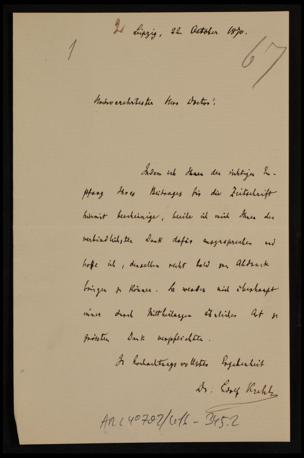 Leipzig, 22 October 1890.
1
67
Hochverehrtester Herr Doctor!
Indem ich Ihnen den richtigen Em-
pfang Ihres Beitrages für die Zeitschrift
hiermit bescheinige, beeile ich mich Ihnen den
verbindlichsten Dank dafür auszusprechen und
hoffe ich, denselben recht bald zum Abdruck
bringen zu können. Sie werden mich überhaupt
immer durch Mittheilungen ähnlicher Art zu
grössten Dank verpflichten.
In hochachtungsvollster Ergebenheit
Dr. Adolf
ARC 4*